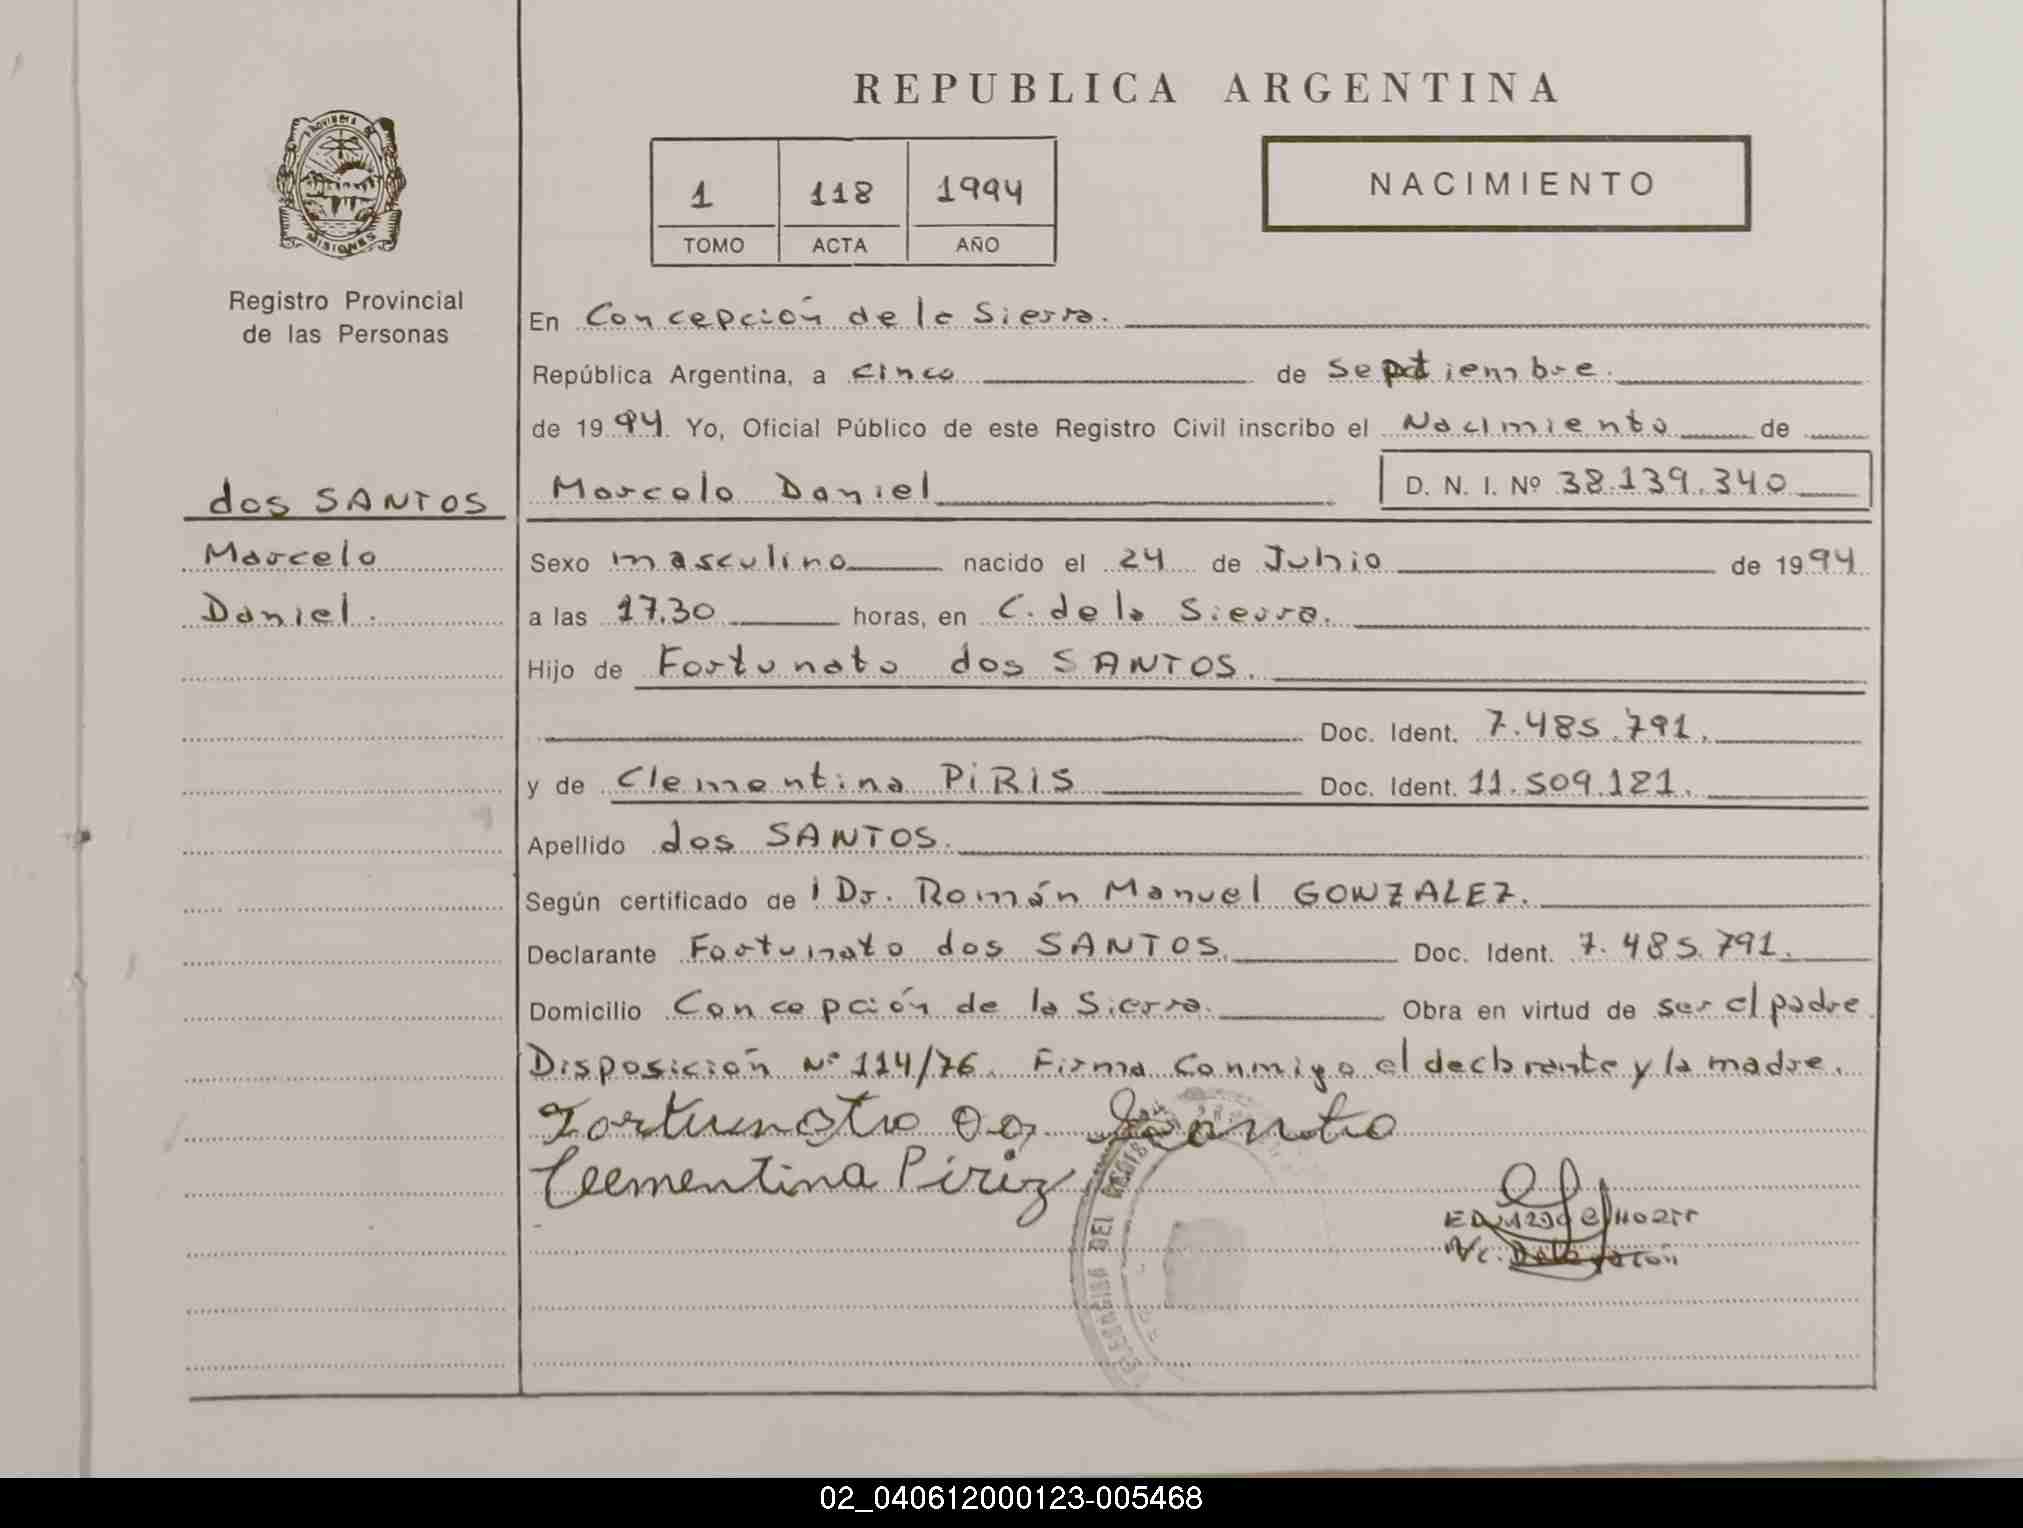 REPUBLICA ARGENTINA
PROVINCIA DE
MISIONES
Registro Provincial
de las Personas
1 118 1994
TOMO ACTA AÑO
NACIMIENTO
En Concepción de la Sierra.
República Argentina, a cinco de Septiembre.
de 1994. Yo, Oficial Público de este Registro Civil inscribo el Nacimiento de
dos SANTOS
Marcelo
Daniel.
Marcelo Daniel D. N. I. Nº 38.139.340
Sexo masculino nacido el 24 de Junio de 1994
a las 17.30 horas, en C. de la Sierra.
Hijo de Fortunato dos SANTOS.
Doc. Ident. 7.485.791.
y de Clementina PIRIS Doc. Ident. 11.509.121.
Apellido dos SANTOS.
Según certificado de l Dr. Román Manuel GONZALEZ.
Declarante Fortunato dos SANTOS. Doc. Ident. 7.485.791.
Domicilio Concepción de la Sierra. Obra en virtud de ser el padre.
Disposición Nº 114/76. Firma conmigo el declarante y la madre.
Fortunato Dos Santo
Clementina Piriz
DEL
02_040612000123-005468